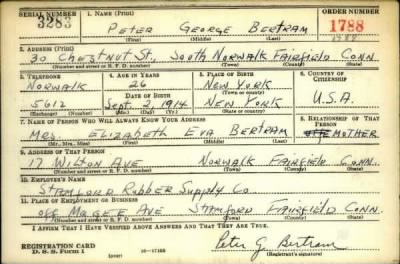 SERIAL NUMBER 1. NAME (Print) ORDER NUMBER
3283 PETER GEORGE BERTRAM 1788
(First) (Middle) (Last) 1988
2. ADDRESS (Print)
30 Chestnut St, South Norwalk Fairfield Conn.
(Number and street or R. F. D. number) (Town) (County) (State)
3. TELEPHONE 4. AGE IN YEARS 5. PLACE OF BIRTH 6. COUNTRY OF CITIZENSHIP
NORWALK 26 NEW YORK
DATE OF BIRTH (Town or county)
5612 Sept. 2, 1914 NEW YORK U.S.A.
(Exchange) (Number) (Mo.) (Day) (Yr.) (State or country)
7. NAME OF PERSON WHO WILL ALWAYS KNOW YOUR ADDRESS 8. RELATIONSHIP OF THAT PERSON
MRS. ELIZABETH EVA BERTRAM MOTHER
(Mr., Mrs., Miss) (First) (Middle) (Last)
9. ADDRESS OF THAT PERSON
17 WILTON AVE NORWALK FAIRFIELD CONN.
(Number and street or R. F. D. number) (Town) (County) (State)
10. EMPLOYER'S NAME
STAMFORD RUBBER SUPPLY CO.
11. PLACE OF EMPLOYMENT OR BUSINESS
OFF MAGEE AVE STAMFORD FAIRFIELD CONN.
(Number and street or R. F. D. number) (Town) (County) (State)
I AFFIRM THAT I HAVE VERIFIED ABOVE ANSWERS AND THAT THEY ARE TRUE.
REGISTRATION CARD
D. S. S. Form 1 (over) 16—17105 Peter G. Bertram
(Registrant's signature)